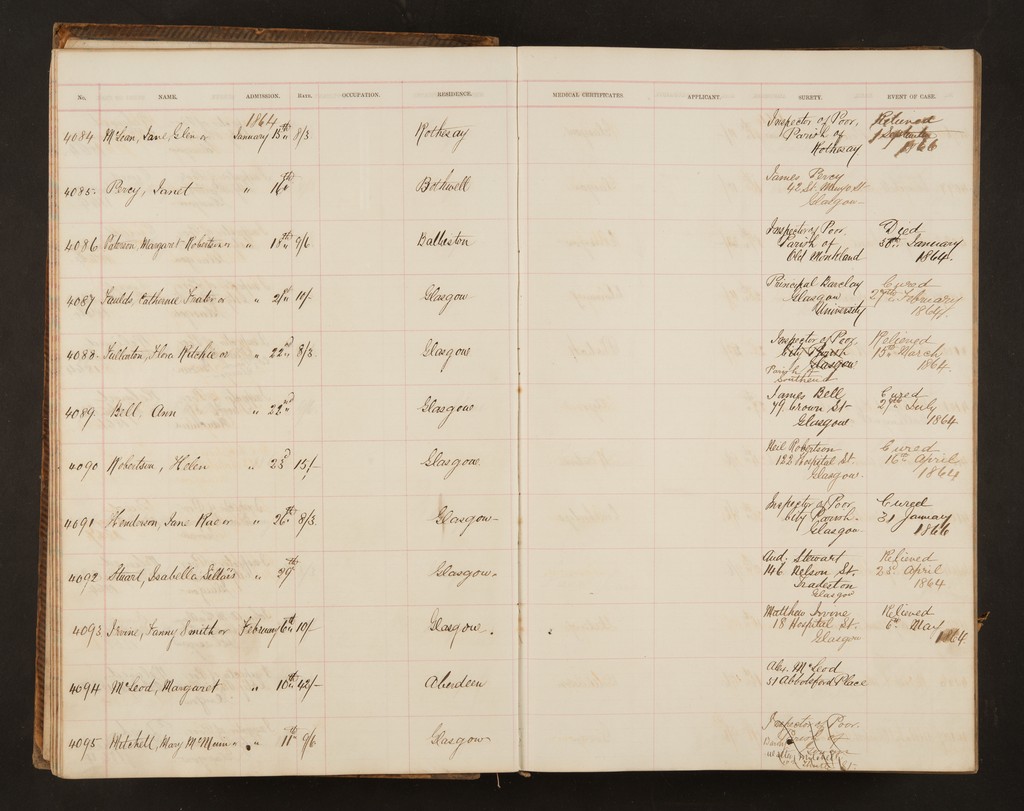 No. NAME. ADMISSION. RATE. OCCUPATION. RESIDENCE. MEDICAL CERTIFICATES. APPLICANT. SURETY. EVENT OF CASE.
1864
4084 McLean, Jane, Glen or January 15th 8/3 Rothesay Inspector of Poor, Relieved
Parish of September
Rothesay 1866
4085 Percy, Janet " 16th Bothwell James Percy
42 St. Mary's St
Glasgow
4086 Paterson, Margaret Robertson or " 18th 9/6 Bailieston Inspector of Poor Died
Parish of 30th January
Old Monkland 1864.
4087 Faulds, Catherine Frater or " 21st 10/- Glasgow Principal Barclay Cured
Glasgow 27th February
University 1864.
4088 Fullarton, Flora Ritchie or " 22nd 8/3 Glasgow Inspector of Poor Relieved
City Parish 15th March
Glasgow 1864.
Parish of
Southend
4089 Bell Ann " 22nd Glasgow James Bell Cured
79 Crown St 27th July
Glasgow 1864
4090 Robertson, Helen " 23d 15/- Glasgow Neil Robertson Cured
122 Hospital St. 16th April
Glasgow 1864
4091 Henderson, Jane Rae or " 26th 8/3 Glasgow Inspector of Poor Cured
City Parish 31 January
Glasgow 1866
4092 Stuart, Isabella " 29th Glasgow And. Stewart Relieved
146 Nelson St. 23d April
Tradeston 1864
Glasgow
4093 Irvine, Fanny Smith or February 6th 10/- Glasgow. Matthew Irvine Relieved
18 Hospital St. 6th May
Glasgow 1864
4094 McLeod, Margaret " 10th 42/- Aberdeen Alex. McLeod
31 Abbotsford Place
4095 Mitchell, Mary " 11th 9/6 Glasgow Inspector of Poor
Parish of
Govan
Mitchell